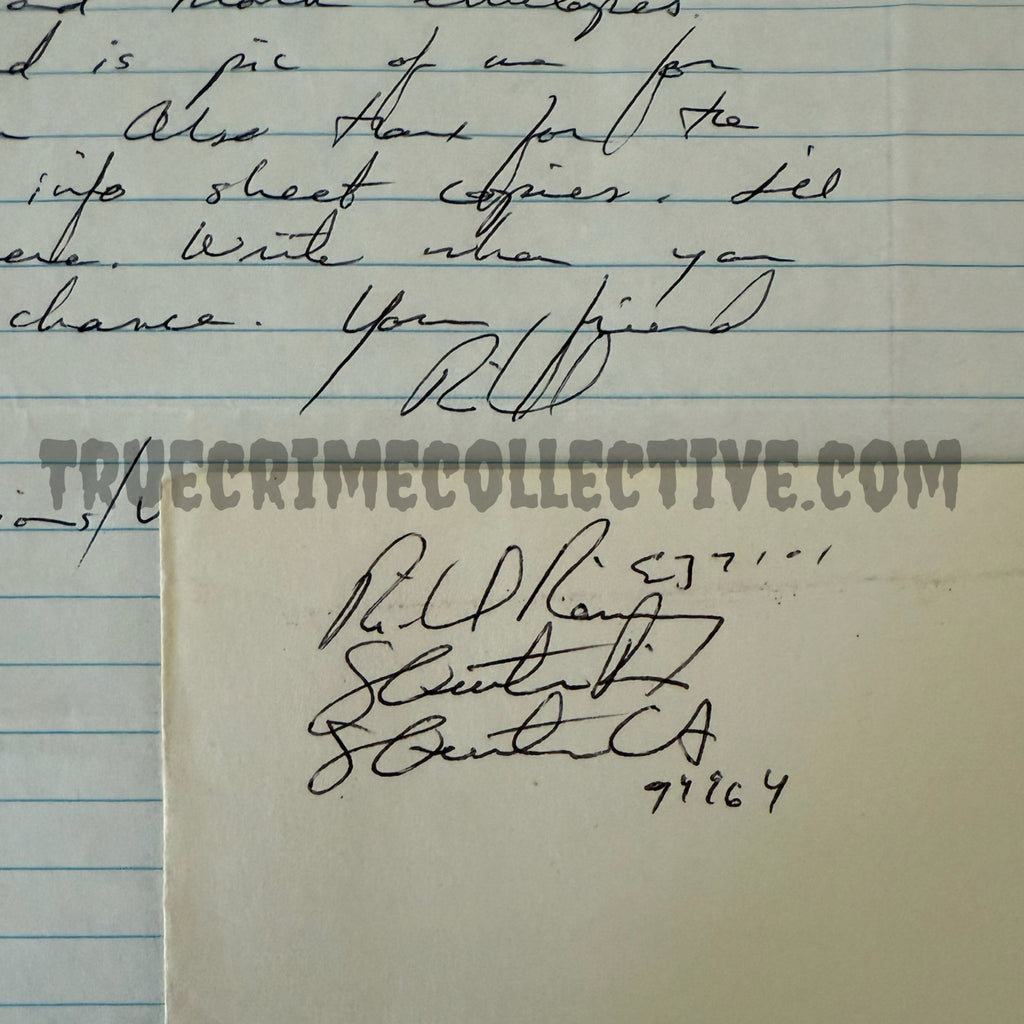 and envelopes.
d is pic of me for
Also thanx for the
info sheet copies. I'll
ere. Write when you
chance. Your friend
Rich
TRUECRIMECOLLECTIVE.COM
ons/
Rich Ramirez E37101
S Quentin Pr
S Quentin CA
94964